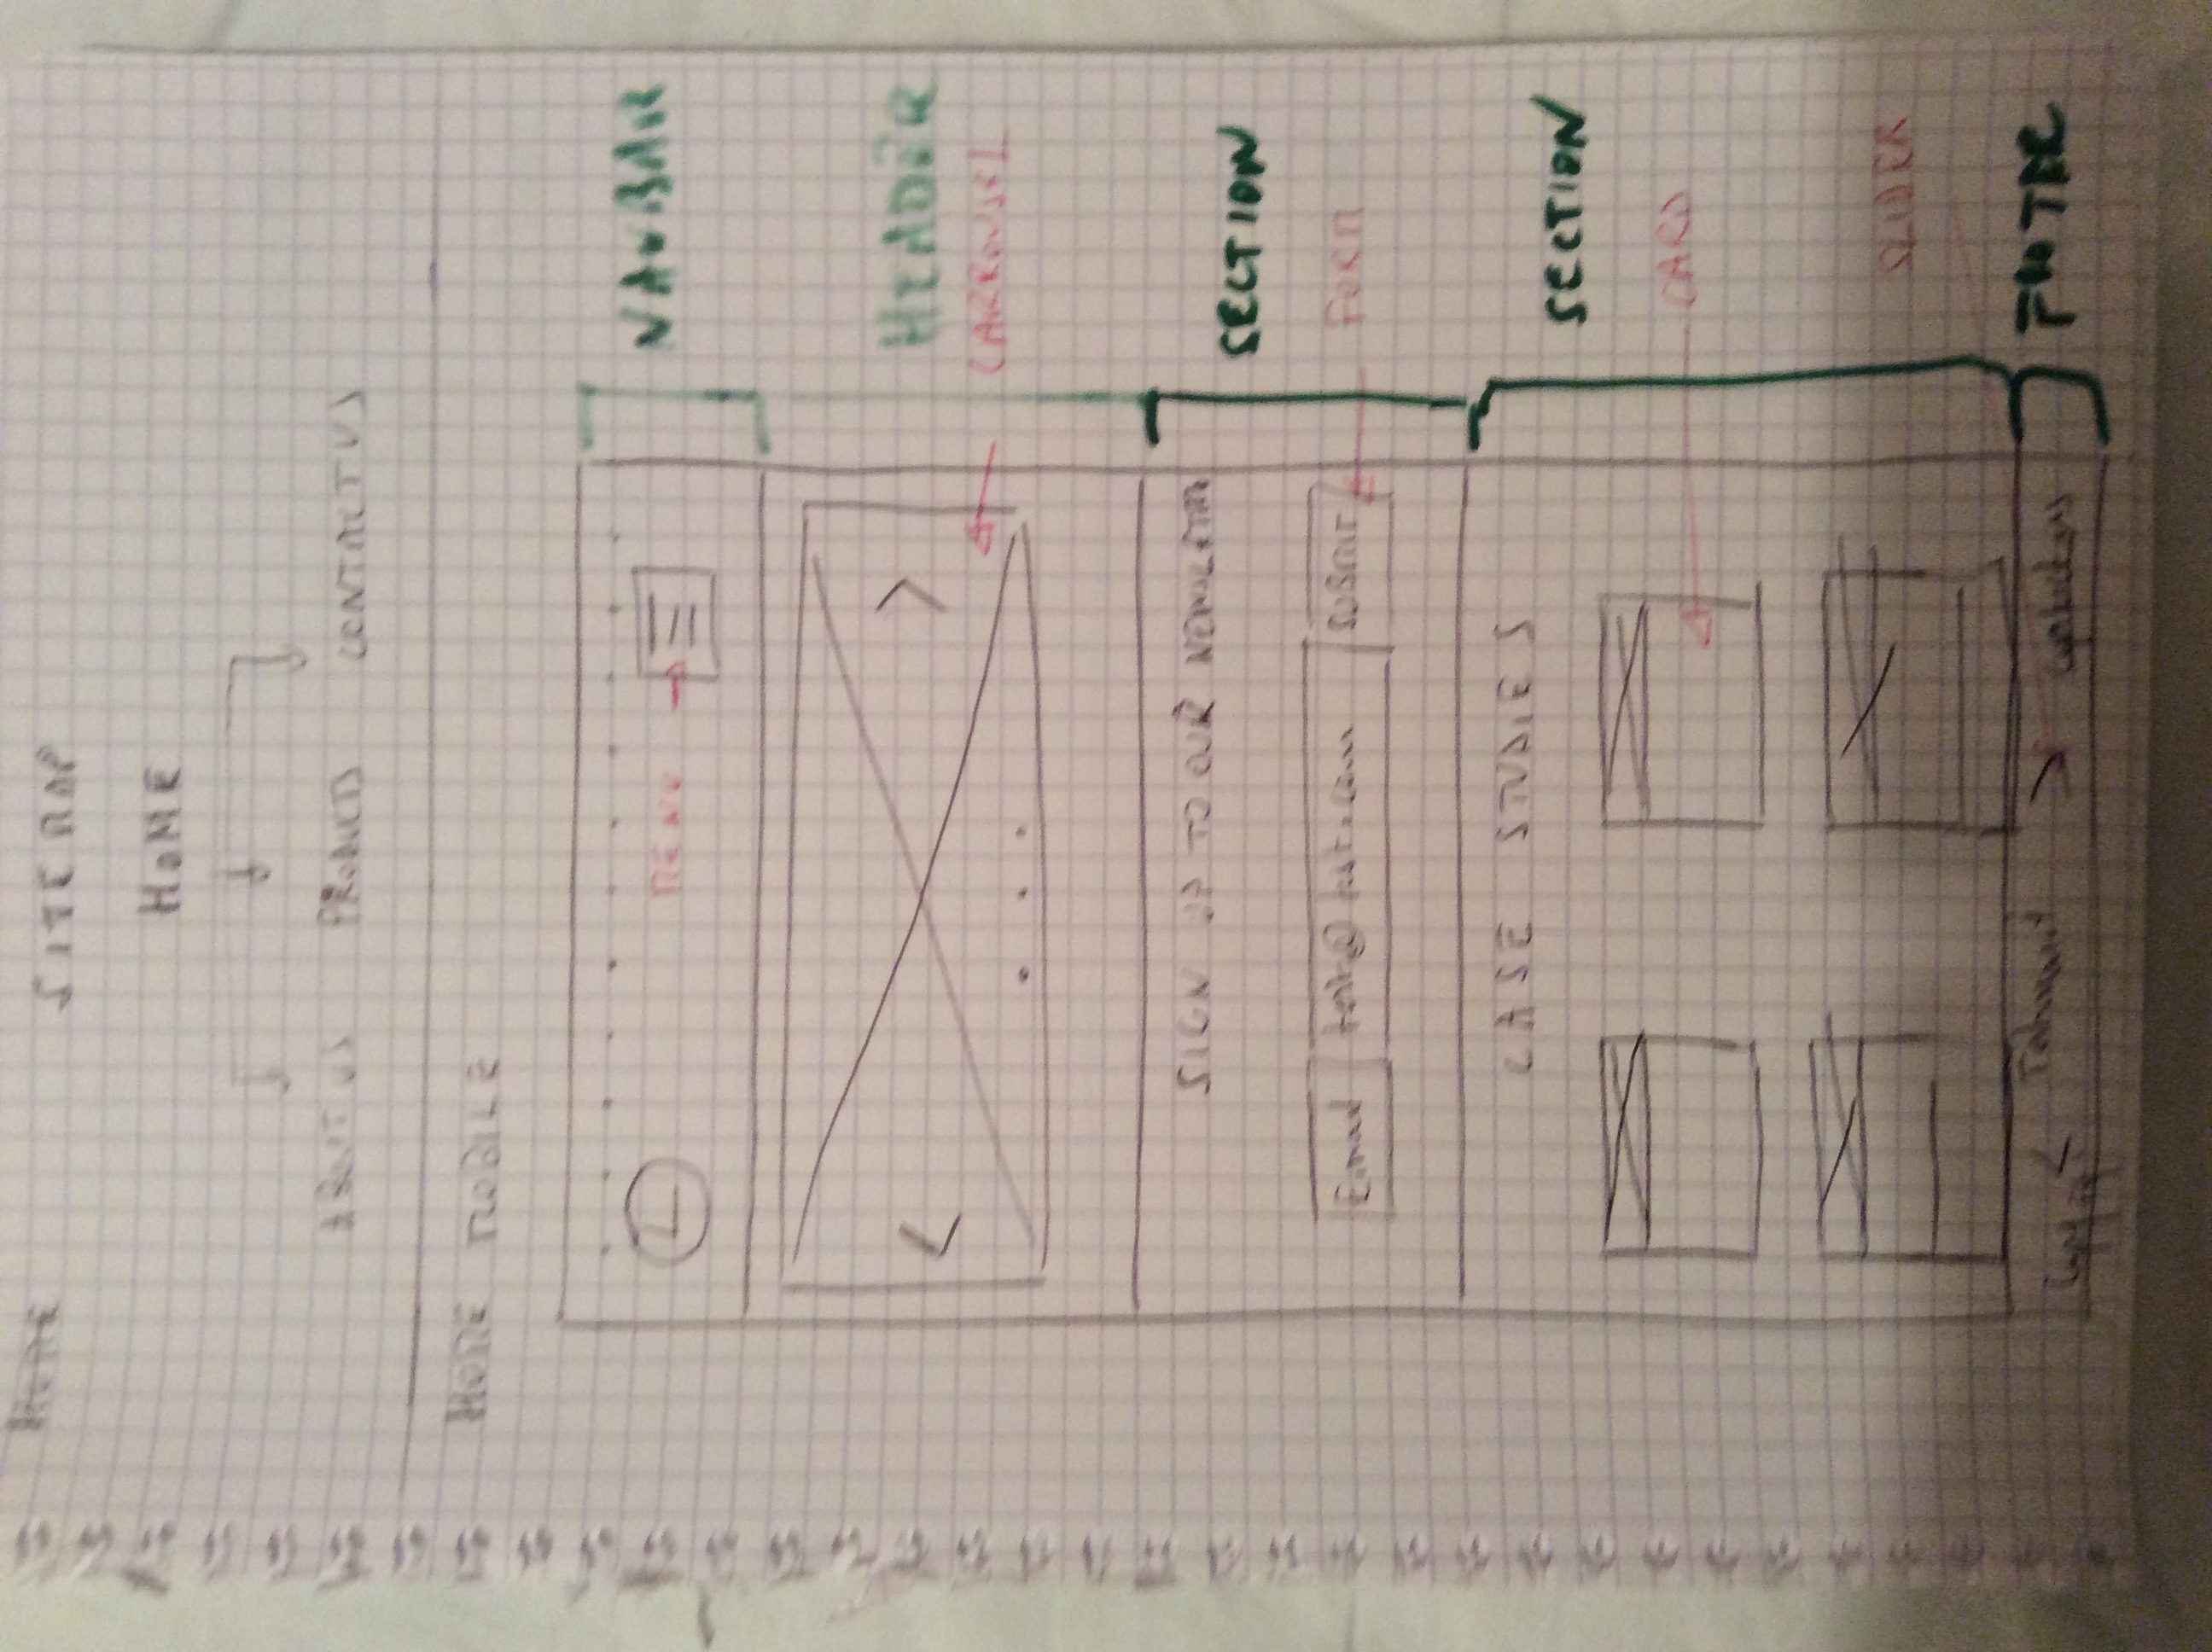 HOME SITEMAP
HOME
ABOUT US PRODUCTS CONTACT US
HOME MOBILE
NAVBAR
L MENU
HEADER
CARROUSEL
SIGN UP TO OUR NEWSLETTER
SECTION
Email test@test.com SUBMIT FORM
CASE STUDIES
SECTION
CARD
SLIDER
FOOTER